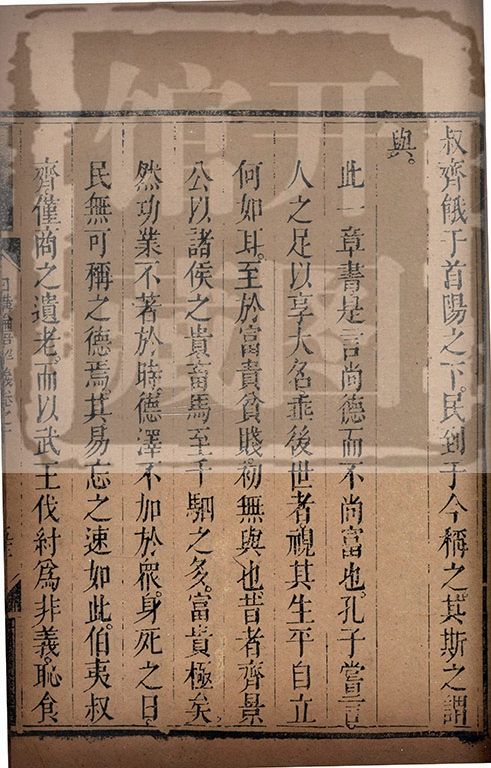 叔齊餓于首陽之下。民到于今稱之。其斯之謂
與。
此一章書是言尚德而不尚富也。孔子嘗言
人之足以享大名垂後世者視其生平自立
何如耳。至於富貴貧賤。初無與也。昔者齊景
公以諸侯之貴畜馬至千駟之多。富貴極矣
然功業不著於時。德澤不加於衆。身死之日
民無可稱之德焉。其易忘之速如此。伯夷叔
齊僅商之遺老。而以武王伐紂爲非義。恥食